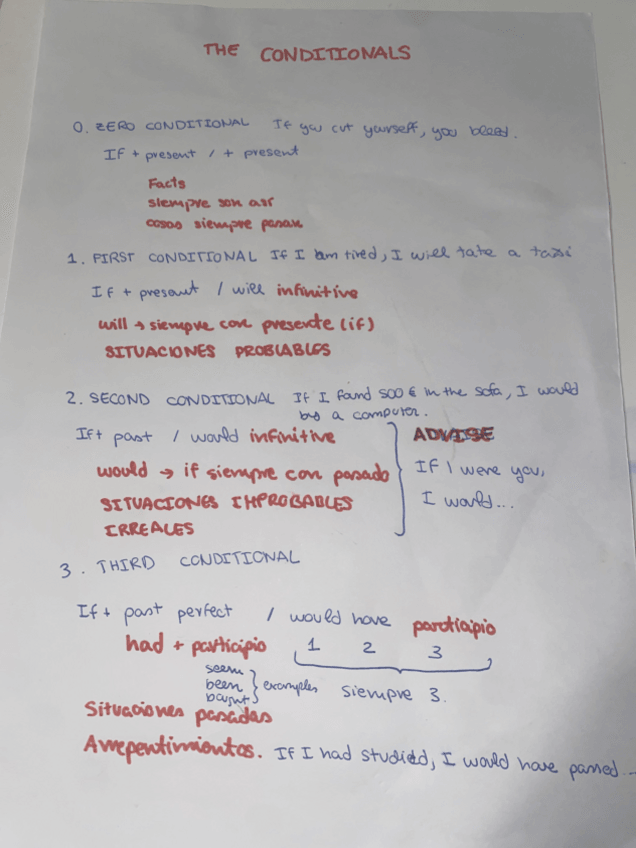 THE CONDITIONALS
0. ZERO CONDITIONAL If you cut yourself, you bleed.
If + present / + present
Facts
siempre son así
cosas siempre pasan
1. FIRST CONDITIONAL If I am tired, I will take a taxi
If + present / will infinitive
will → siempre con presente (if)
SITUACIONES PROBLABLES
2. SECOND CONDITIONAL If I found 500 € in the sofa, I would
buy a computer.
If + past / would infinitive
would → if siempre con pasado
SITUACIONES IMPROBABLES
IRREALES
ADVISE
If I were you,
I would...
3. THIRD CONDITIONAL
If + past perfect / would have participio
had + participio 1 2 3
seen
been
examples siempre 3.
Situaciones pasadas
Arrepentimientos. If I had studied, I would have passed...